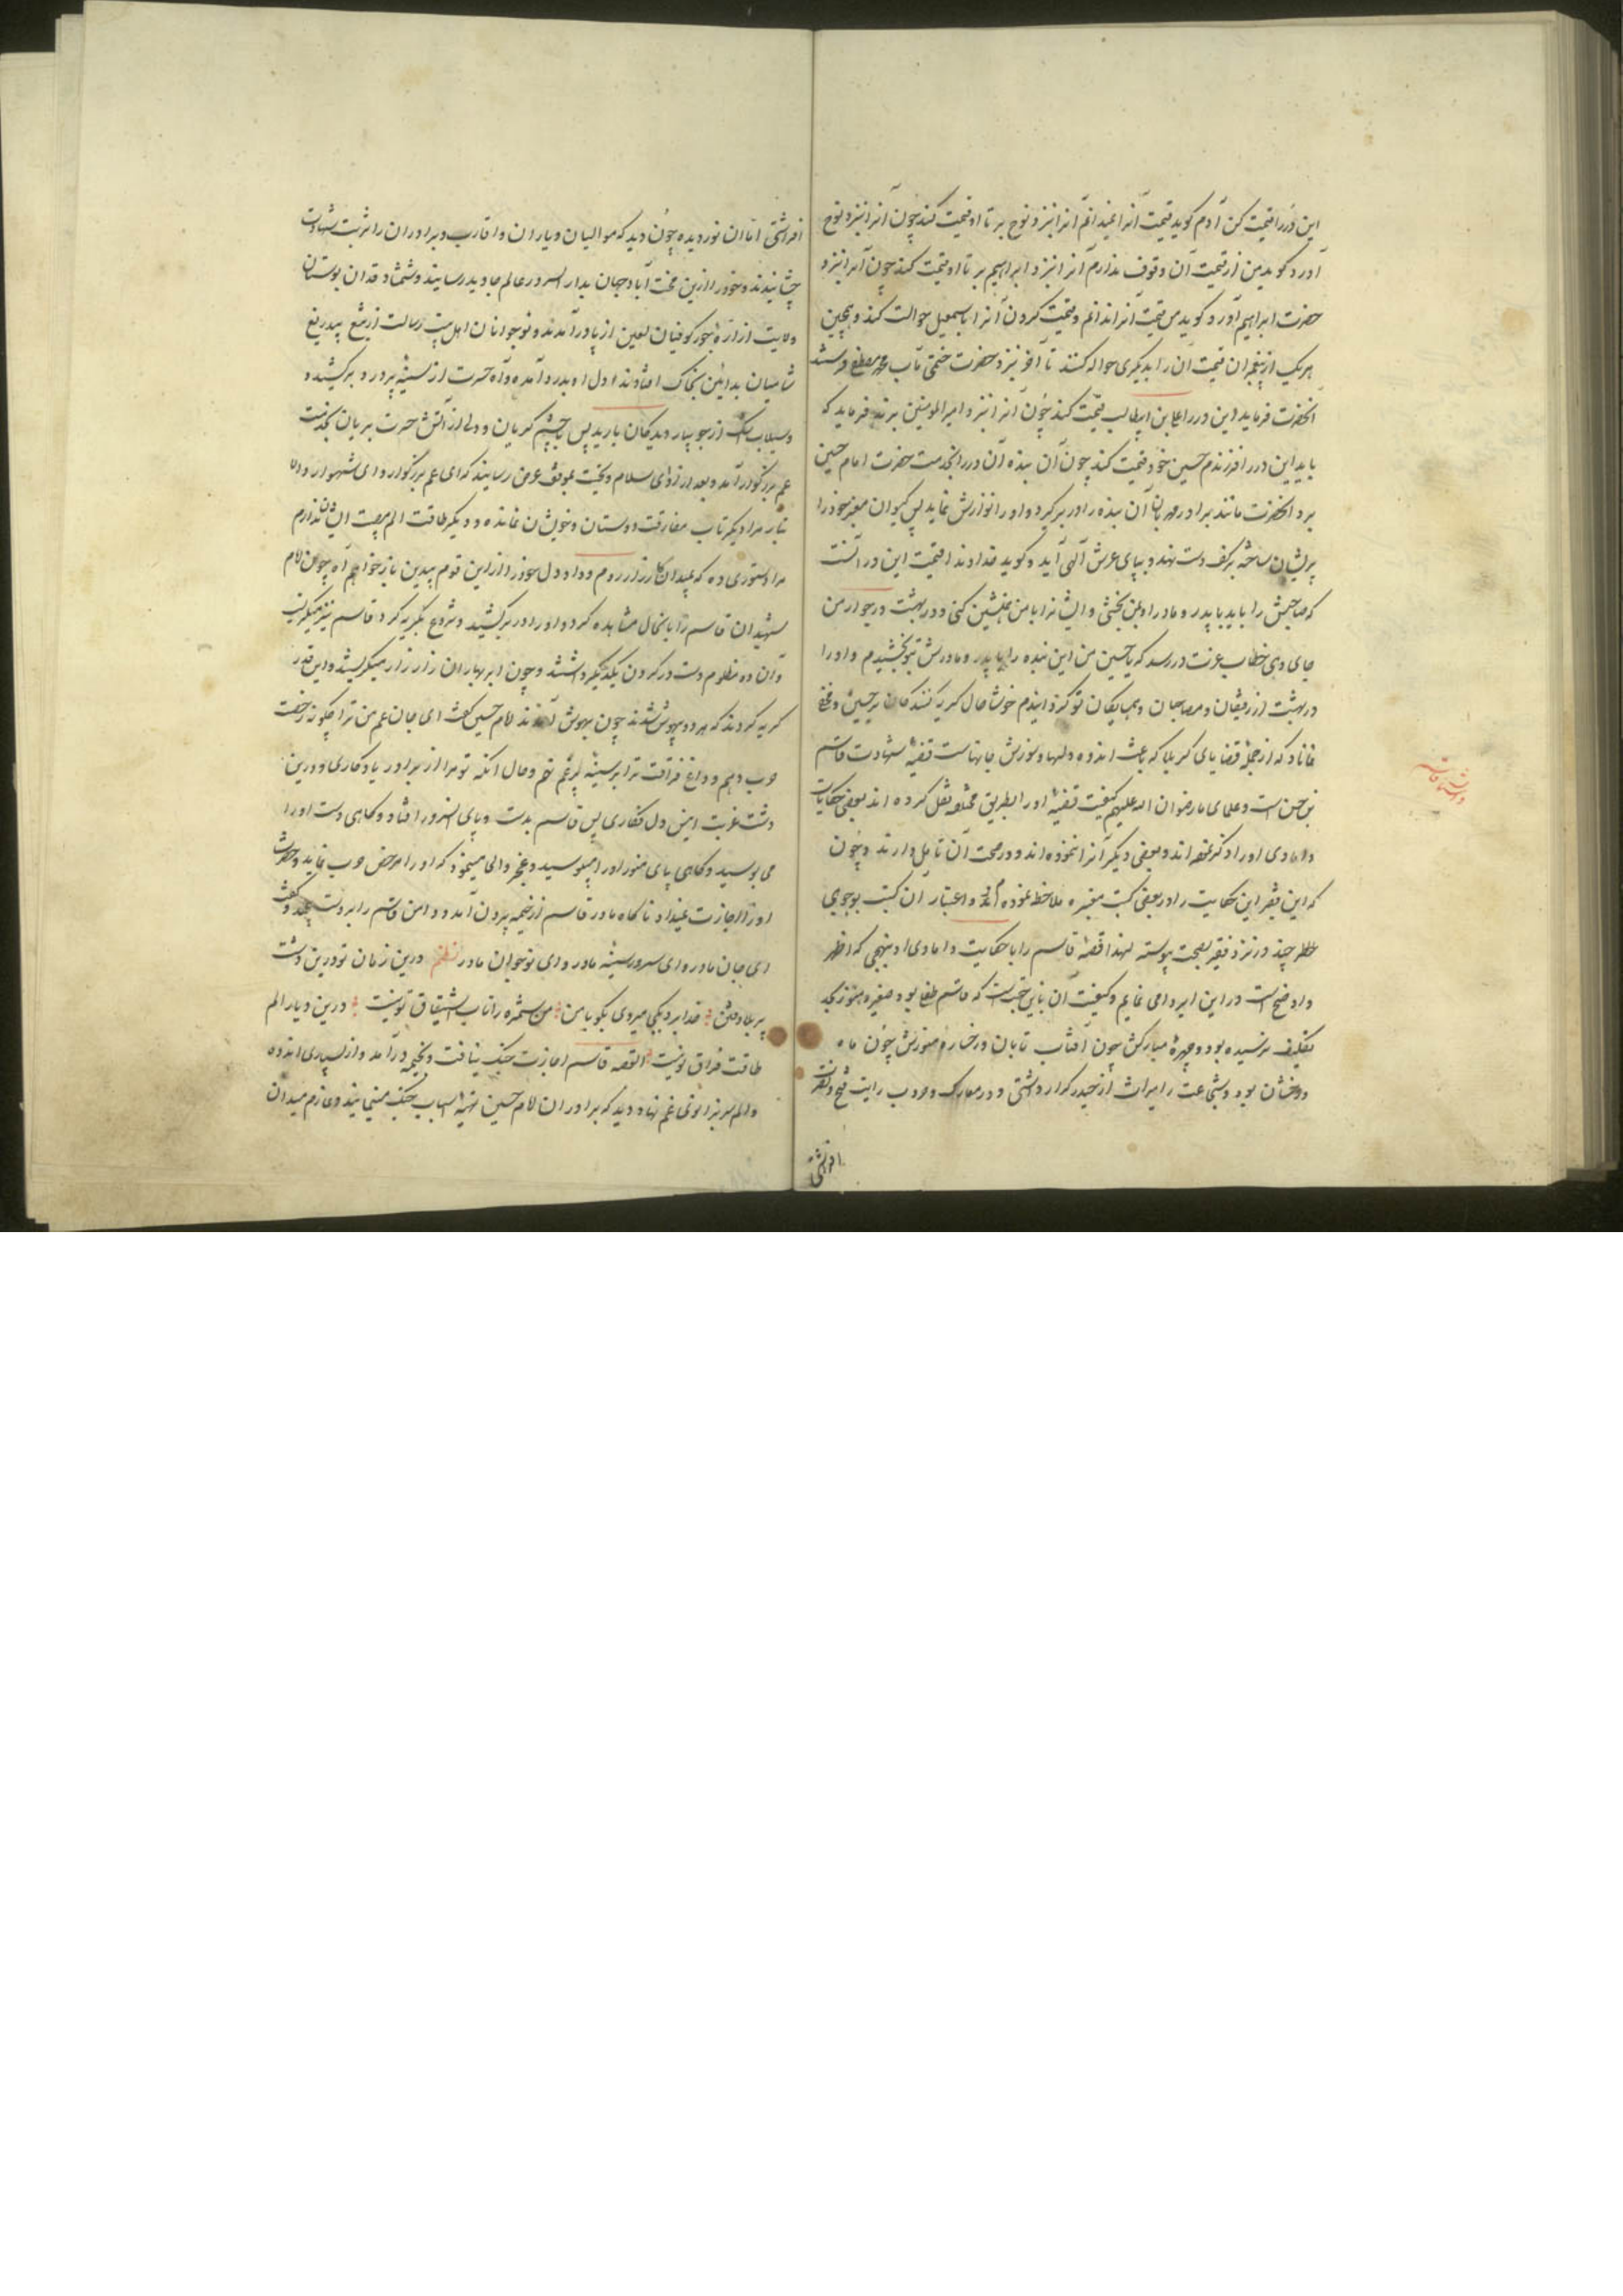 این در را قیمت کن آدم کوید قیمت آنرا نمیدانم آنرا بنزد نوح بر تا او قیمت کند چون آنرا بنزد نوح
آورد کوید من از قیمت آن وقوف ندارم آنرا بنزد ابراهیم بر تا او قیمت کند چون آنرا بنزد
حضرت ابراهیم آورد کوید من قیمت آنرا ندانم و قیمت کردن آنرا باسمعیل حوالت کند و همچنین
هریک از پیغمبران قیمت آن را بدیکری حواله کنند تا آخر بنزد حضرت ختمی مآب محمد مصطفی فرستند
انحضرت فرماید این در را علی بن ابیطالب قیمت کند چون آنرا بنزد امیر المومنین برند فرماید که
باید این در را فرزندم حسین خود قیمت کند چون آن بنده آن در را بخدمت حضرت امام حسین
برد انحضرت مانند برادر مهربان آن بنده را در بر کیرد و او را نوازش نماید پس کیسوان معنبر خود را
پریشان ساخته بر کف دست نهد و بپای عرش آلهی آید و کوید خداوندا قیمت این در آنست
که صاحبش را باید با پدر و مادر او بمن بخشی و ایشانرا با من همنشین کنی و در بهشت در جوار من
جای دهی خطاب عزت در رسد که یا حسین من این بنده را با پدر و مادرش بتو بخشیدم و او را
در بهشت از رفیقان و مصاحبان و همسایکان تو کردانیدم خوشا حال کریه کنندکان بر حسین و مخفی
نماناد که از جمله قضایای کربلا که باعث اندوه دلها و سوزش جانهاست قضیه شهادت قاسم
بن حسن است و علمای ما رضوان الله علیهم کیفیت قضیه او را بطریق مختلفه نقل کرده اند بعضی حکایات
دامادی او را ذکر نموده اند و بعضی دیکر آنرا ننموده اند و در صحت آن تامل دارند و چون
که این فقیر این حکایت را در بعضی کتب معتبره ملاحظه نموده ام و اعتبار آن کتب بوجوهی
چند در نزد فقیر بصحت پیوسته لهذا قصه قاسم را با حکایت دامادی او بنهجی که اظهر
و اوضح است در این ایراد می نمایم و کیفیت آن باین نحو است که قاسم طفلی بود صغیر هنوز بحد
تکلیف نرسیده بود و چهرهٔ مبارکش چون آفتاب تابان و رخسارهٔ منورش چون ماه
درخشان بود و شجاعت را میراث از حیدر کرار داشتی و در معارک و حروب رایت فتح و نصرت
افراشتی
افراشتی اما آن نور دیده چون دید که موالیان و یاران و اقارب و برادران را شربت شهادت
چشانیدند و خود را ازین محنت آباد جهان بدار السرور عالم جاوید رسانیدند و شمشاد قدان بوستان
ولایت از ارهٔ جور کوفیان لعین از پا درآمدند و نوجوانان اهل بیت رسالت از تیغ بیدریغ
شامیان بد آیین بخاک افتادند اول او بدر آمده و آه حسرت از سینهٔ پر درد برکشیده و
سیلاب اشک از جویبار دیدکان بارید پس با چشم کریان و دلی از آتش حسرت بریان بخدمت
عم بزرکوار آمد و بعد از ادای سلام و تحیت بموقف عرض رسانید که ای عم بزرکوار و ای شهسوار والا
تبار مرا دیکر تاب مفارقت دوستان و خویشان نمانده و دیکر طاقت الم مصیبت ایشان ندارم
مرا دستوری ده که بمیدان کارزار روم و داد دل خود را از این قوم بیدین باز خواهم آه چون امام
شهیدان قاسم را باینحال مشاهده کرد و او را در بر کشید و شروع بکریه کرد قاسم نیز میکریست
و آن دو مظلوم دست در کردن یکدیکر داشتند و چون ابر بهاران زار زار میکریستند و این قدر
کریه کردند که هر دو بیهوش شدند چون بهوش آمدند امام حسین کفت ای جان عم من ترا چکونه رخصت
حرب دهم و داغ فراقت ترا بر سینه پر غم نهم و حال آنکه تو مرا از برادر یادکاری و درین
دشت غربت انیس دل فکاری پس قاسم بدست و پای آنسرور افتاد و کاهی دست او را
می بوسید و کاهی پای منور او را میبوسید و عجز و الحاح مینمود که او را مرخص حرب نماید و حضرت
او را اجازت نمیداد ناکاه مادر قاسم از خیمه بیرون آمد و دامن قاسم را بر دست پیچید و کفت
ای جان مادر و ای سرور سینه مادر و ای نوجوان مادر نظم درین زمان تو درین دشت
پر بلا و فتن خدایرا بکجا میروی بکو با من من ستمزده را تاب اشتیاق تو نیست درین دیار الم
طاقت فراق تو نیست القصه قاسم اجازت جنک نیافت و بخیمه درآمد و از بسیاری اندوه
و الم سر بزانوی غم نهاد و دید که برادران امام حسین تهیه اسباب جنک مینمایند و عازم میدان